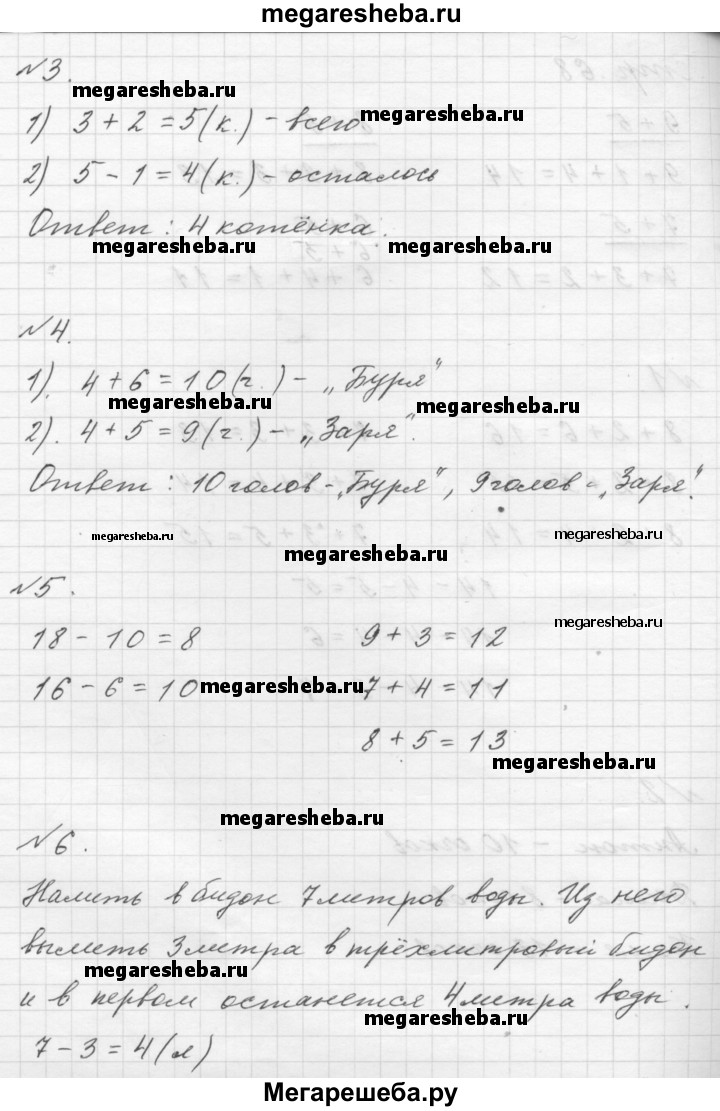 megaresheba.ru
№3.
megaresheba.ru
1) 3 + 2 = 5 (к.) - всего
megaresheba.ru
2) 5 - 1 = 4 (к.) - осталось
Ответ : 4 котёнка.
megaresheba.ru megaresheba.ru
№4.
1). 4 + 6 = 10 (г.) - „Буря"
megaresheba.ru megaresheba.ru
2). 4 + 5 = 9 (г.) - „Заря".
Ответ : 10 голов - „Буря", 9 голов - „Заря".
megaresheba.ru megaresheba.ru
megaresheba.ru
№5.
megaresheba.ru
18 - 10 = 8 9 + 3 = 12
16 - 6 = 10 megaresheba.ru 7 + 4 = 11
8 + 5 = 13
megaresheba.ru
megaresheba.ru
№6.
Налить в бидон 7 литров воды. Из него
вылить 3 литра в трёхлитровый бидон
megaresheba.ru
и в первом останется 4 литра воды.
megaresheba.ru
7 - 3 = 4 (л)
Мегарешеба.ру